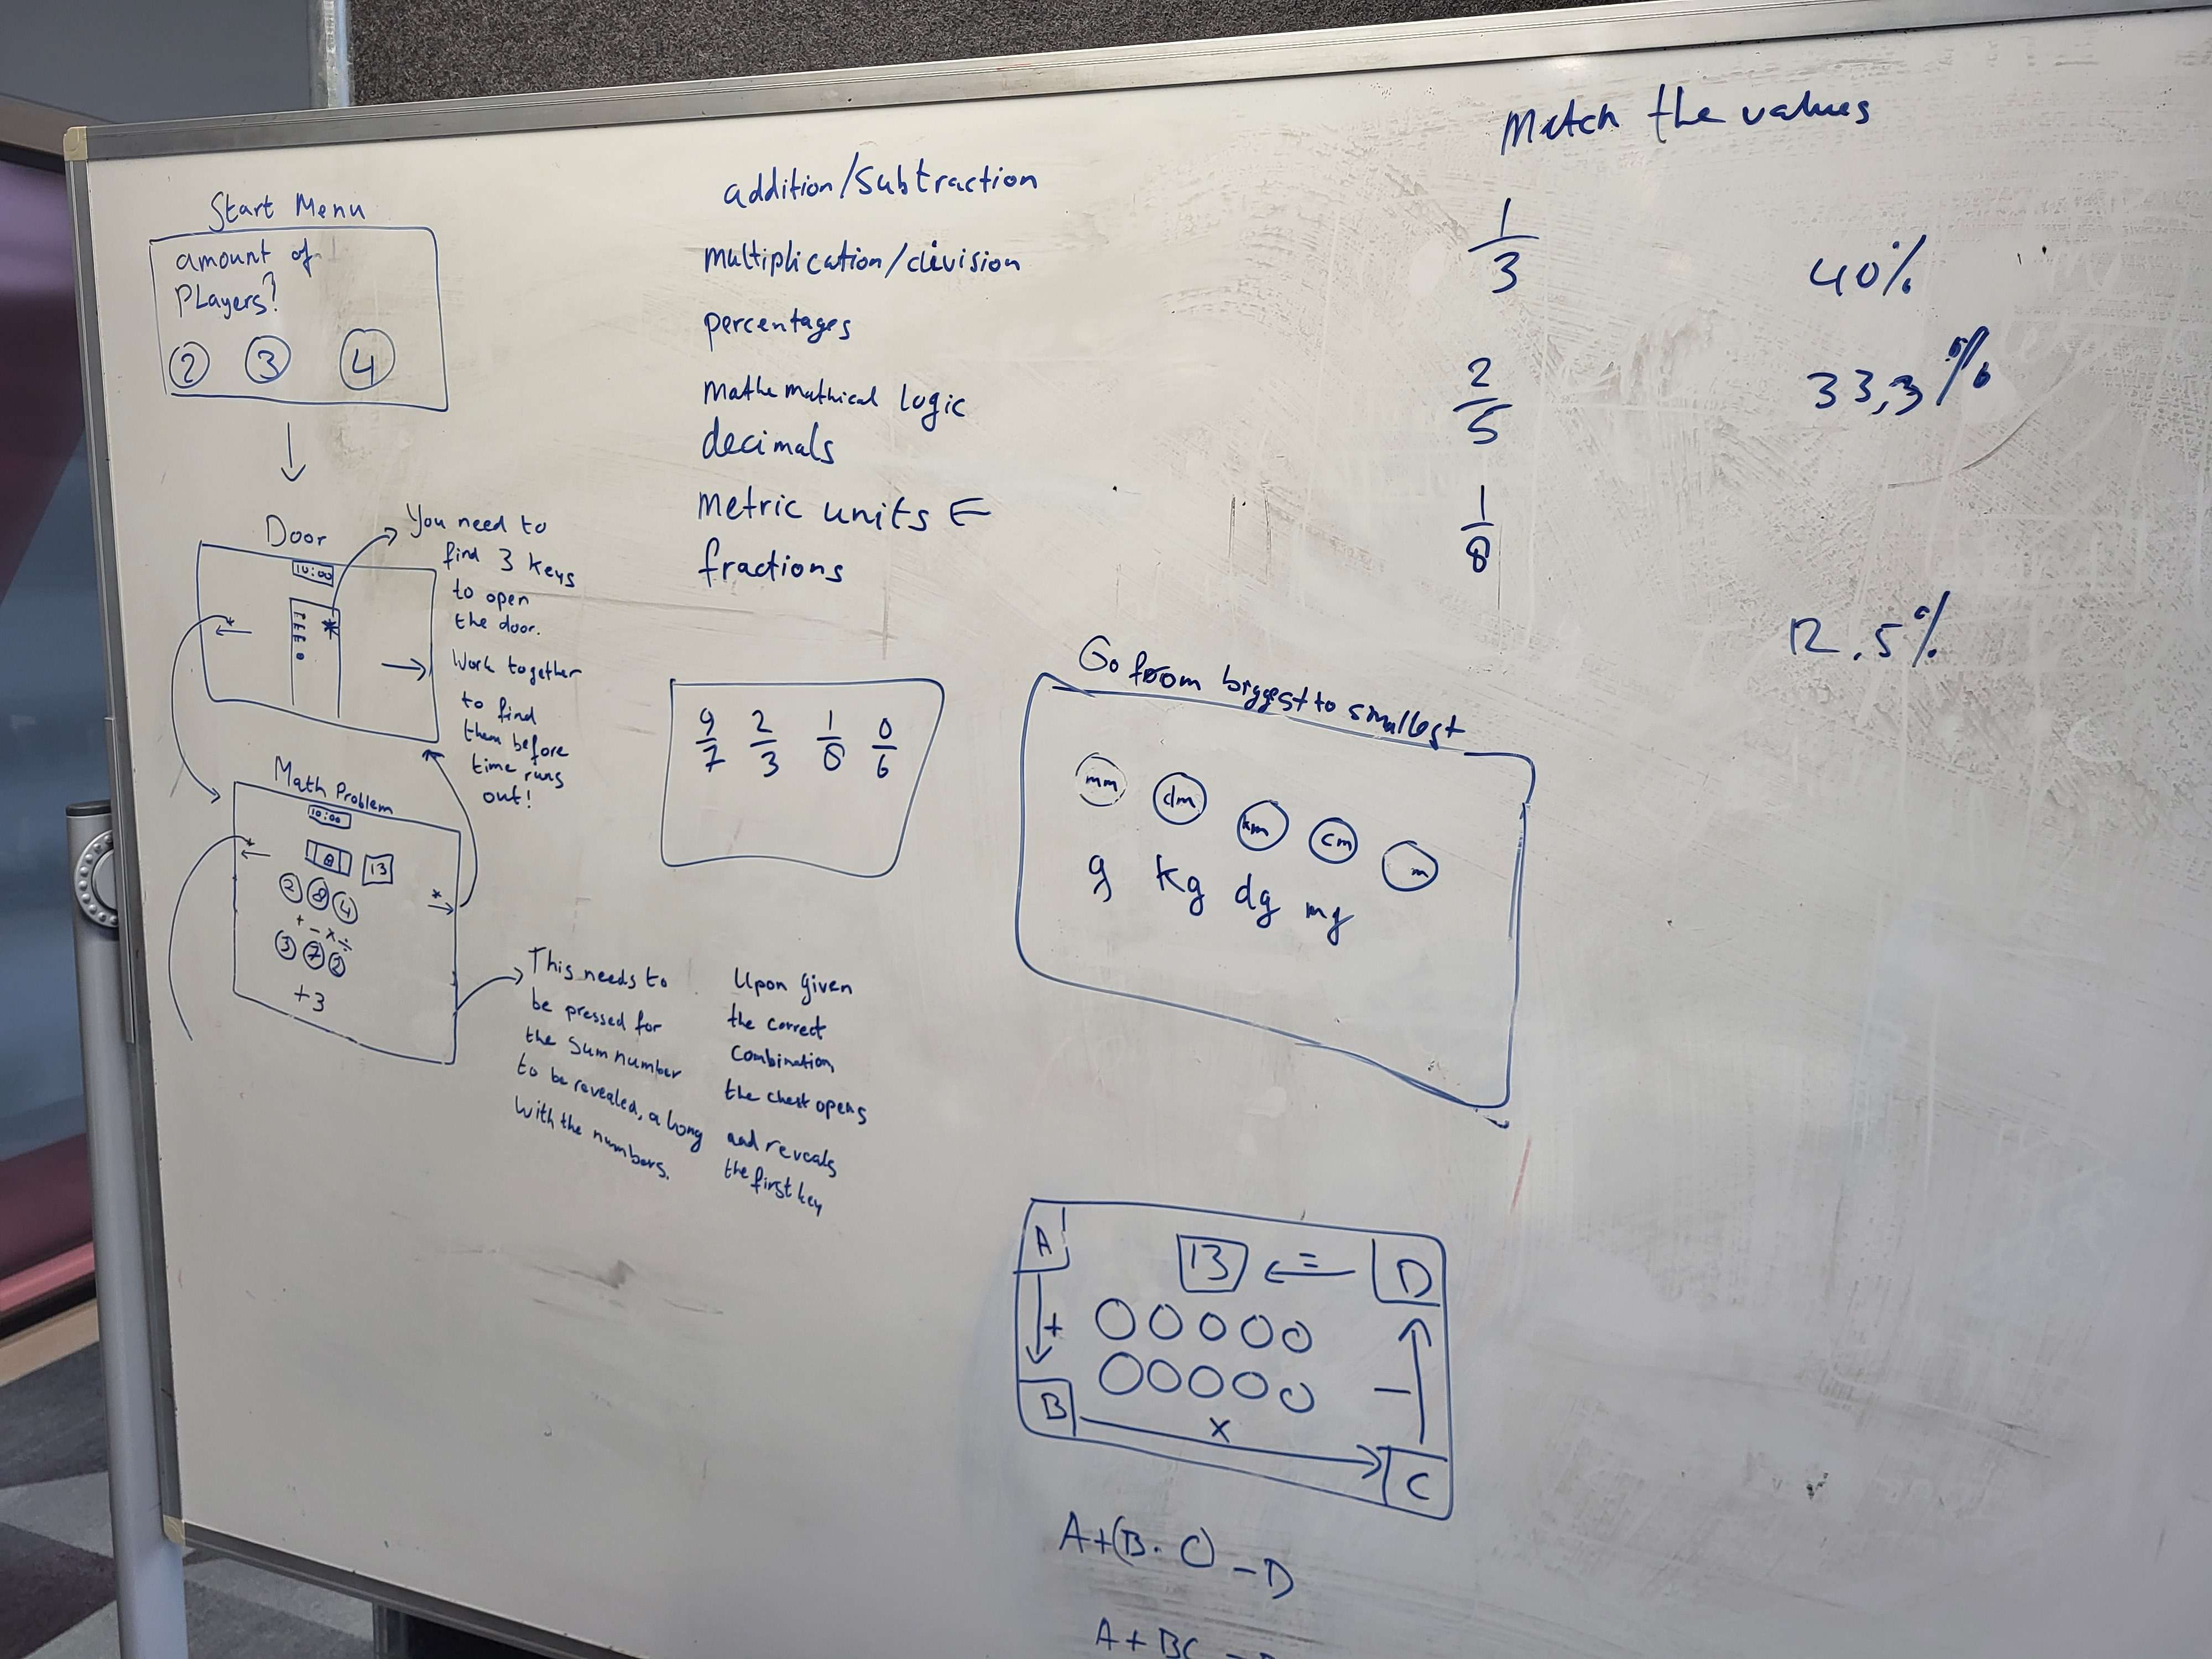 Start Menu
amount of
players?
2 3 4
Door
10:00
You need to
find 3 keys
to open
the door.
Work together
to find
them before
time runs
out!
Math Problem
10:00
13
2 8 4
+ - x ÷
3 7 2
+3
This needs to
be pressed for
the sum number
to be revealed, a long
with the numbers.
Upon given
the correct
combination
the chest opens
and reveals
the first key
addition/subtraction
multiplication/division
percentages
mathemathical logic
decimals
metric units ←
fractions
9/7 2/3 1/8 0/6
Match the values
1/3 40%
2/5 33,3%
1/8
12.5%
Go from biggest to smallest
mm dm km cm m
g kg dg mg
A 13 = D
+
B x C
-
A+(B·C)-D
A+BC -D